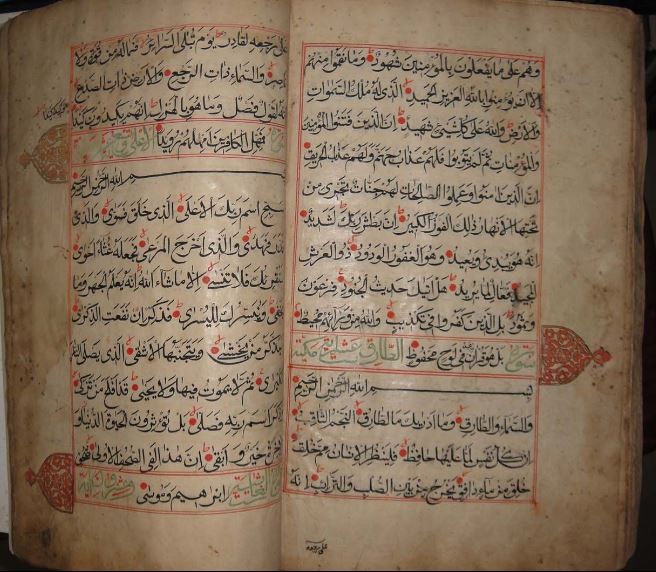 وهم على ما يفعلون بالمؤمنين شهود وما نقموا منهم
الا ان يؤمنوا بالله العزيز الحميد الذى له ملك السموات
والارض والله على كل شئ شهيد ان الذين فتنوا المؤمنين
والمؤمنات ثم لم يتوبوا فلهم عذاب جهنم ولهم عذاب الحريق
ان الذين امنوا وعملوا الصالحات لهم جنات تجرى من
تحتها الانهار ذلك الفوز الكبير ان بطش ربك لشديد
انه هو يبدئ ويعيد وهو الغفور الودود ذو العرش
المجيد فعال لما يريد هل اتيك حديث الجنود فرعون
وثمود بل الذين كفروا فى تكذيب والله من ورائهم محيط
بل هو قران مجيد فى لوح محفوظ الطارق مكية
بسم الله الرحمن الرحيم
والسماء والطارق وما ادريك ما الطارق النجم الثاقب
ان كل نفس لما عليها حافظ فلينظر الانسان مم خلق
خلق من ماء دافق يخرج من بين الصلب والترائب انه
على رجعه
على رجعه لقادر يوم تبلى السرائر فماله من قوة ولا
ناصر والسماء ذات الرجع والارض ذات الصدع
انه لقول فصل وما هو بالهزل انهم يكيدون كيدا
فمهل الكافرين امهلهم رويدا الاعلى
بسم الله الرحمن الرحيم
سبح اسم ربك الاعلى الذى خلق فسوى والذى
قدر فهدى والذى اخرج المرعى فجعله غثاء احوى
سنقرئك فلا تنسى الا ماشاء الله انه يعلم الجهر وما
يخفى ونيسرك لليسرى فذكر ان نفعت الذكرى
سيذكر من يخشى ويتجنبها الاشقى الذى يصلى النار
الكبرى ثم لا يموت فيها ولا يحيى قد افلح من تزكى
وذكر اسم ربه فصلى بل تؤثرون الحيوة الدنيا و
الاخرة خير وابقى ان هذا لفى الصحف الاولى صحف
ابراهيم وموسى